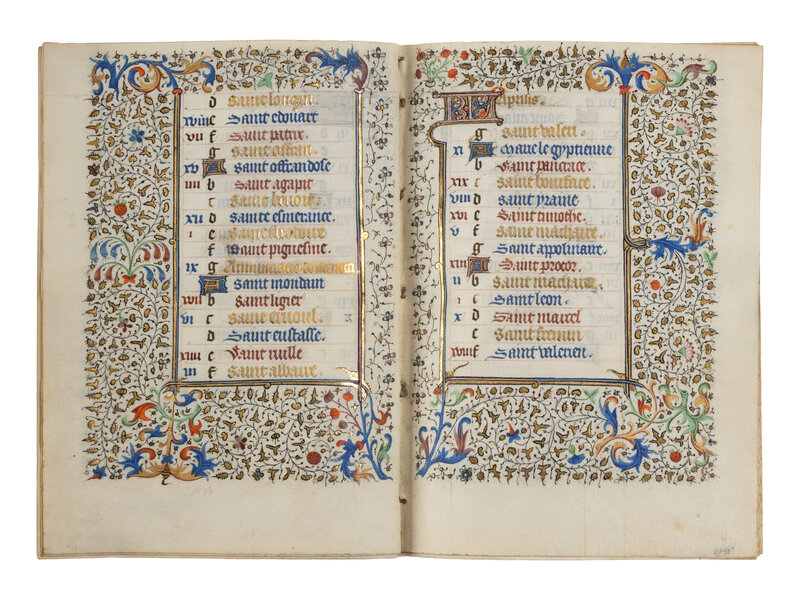 d Saint longin.
xviii e Saint edouart
vii f Saint patrix.
g Saint
xv A saint offrandose
iiii b Saint agapit
c Saint benoit.
xii d Sainte esmerance.
i e Saint theodoire
f Saint pigmesme.
ix g Annunciacio dominica
A Saint mondain
xvii b Saint ligier
vi c Saint ernoul.
d Saint eustasse.
xiiii e Saint rulle
iii f Saint albane.
Aprilis.
g Saint valeri.
xi A Marie le gyptienne
b Saint pancrace.
xix c Saint boniface.
viii d Saint yraine
xvi e Saint timothe.
v f Saint machaire.
g Saint appolinaire.
xiii A Saint procor.
ii b Saint machaire.
i c Saint leon.
x d Saint marcel
e Saint fremin
xviii f Saint valerien.